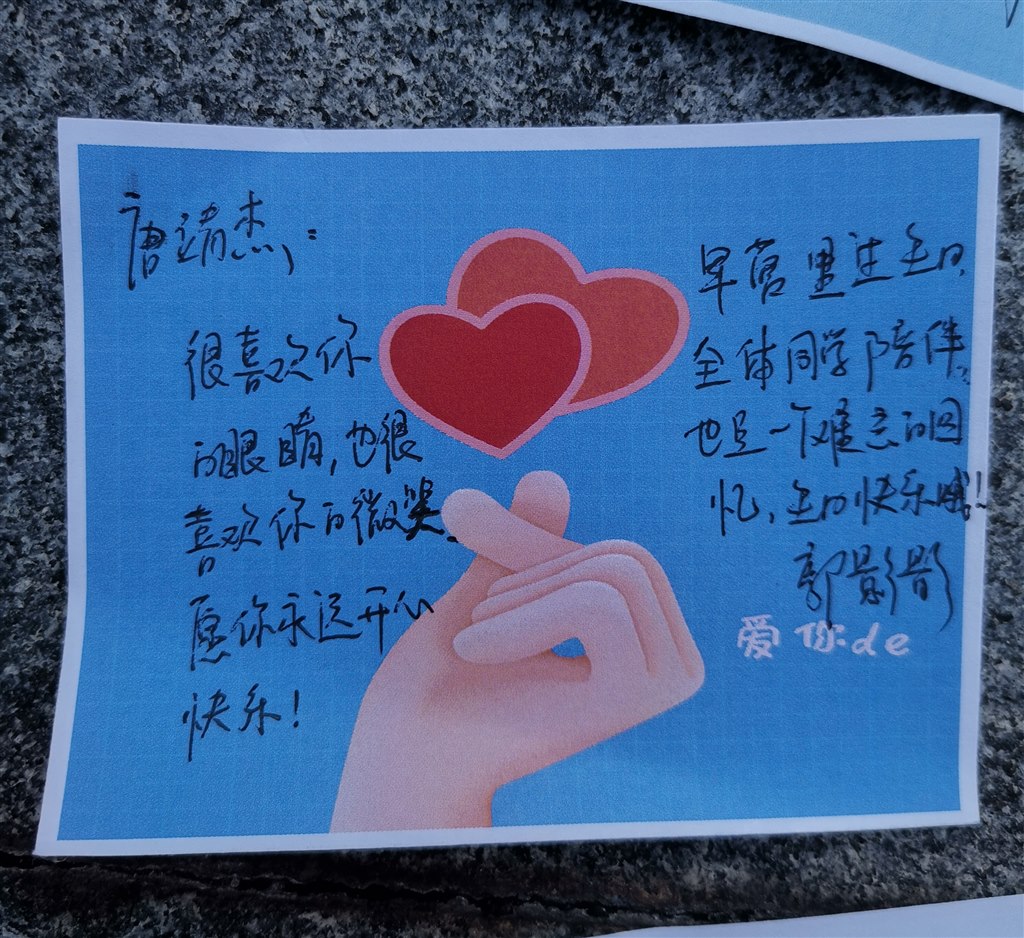 唐靖杰：
很喜欢你
的眼睛，也很
喜欢你的微笑、
愿你永远开心
快乐！
早营里过生日
全体同学陪伴。
也是一个难忘的回
忆，生日快乐哦！
郭影影
爱你de